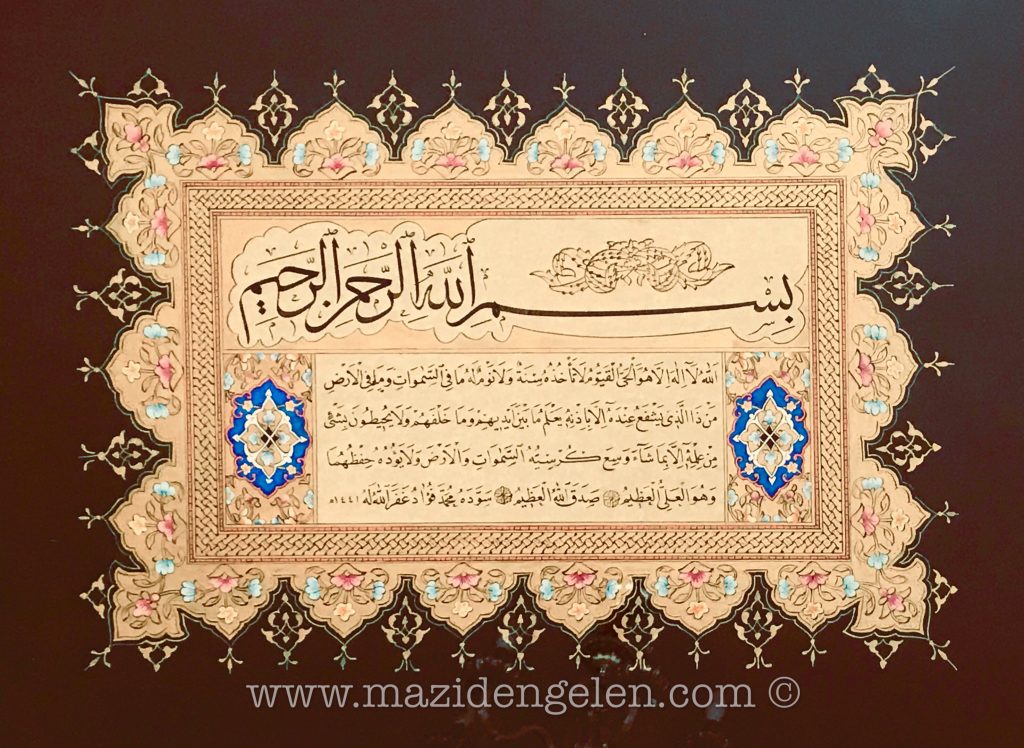 بِسْمِ ٱللهِ ٱلرَّحْمٰنِ ٱلرَّحِيمِ
اَللهُ لَآ اِلٰهَ اِلَّا هُوَ اَلْحَيُّ الْقَيُّومُ لَا تَأْخُذُهُ سِنَةٌ وَلَا نَوْمٌ لَهُ مَا فِي السَّمٰوَاتِ وَمَا فِي الْاَرْضِ
مَنْ ذَا الَّذِي يَشْفَعُ عِنْدَهُ اِلَّا بِاِذْنِهِ يَعْلَمُ مَا بَيْنَ اَيْدِيهِمْ وَمَا خَلْفَهُمْ وَلَا يُحِيطُونَ بِشَيْءٍ
مِنْ عِلْمِهِ اِلَّا بِمَا شَآءَ وَسِعَ كُرْسِيُّهُ السَّمٰوَاتِ وَالْاَرْضَ وَلَا يَؤُدُهُ حِفْظُهُمَا
وَهُوَ الْعَلِيُّ الْعَظِيمُ صَدَقَ اللهُ الْعَظِيمُ سَوَّدَهُ مُحَمَّد فُؤَاد غَفَرَ اللهُ لَهُ ١٤٤١ه
www.mazidengelen.com ©